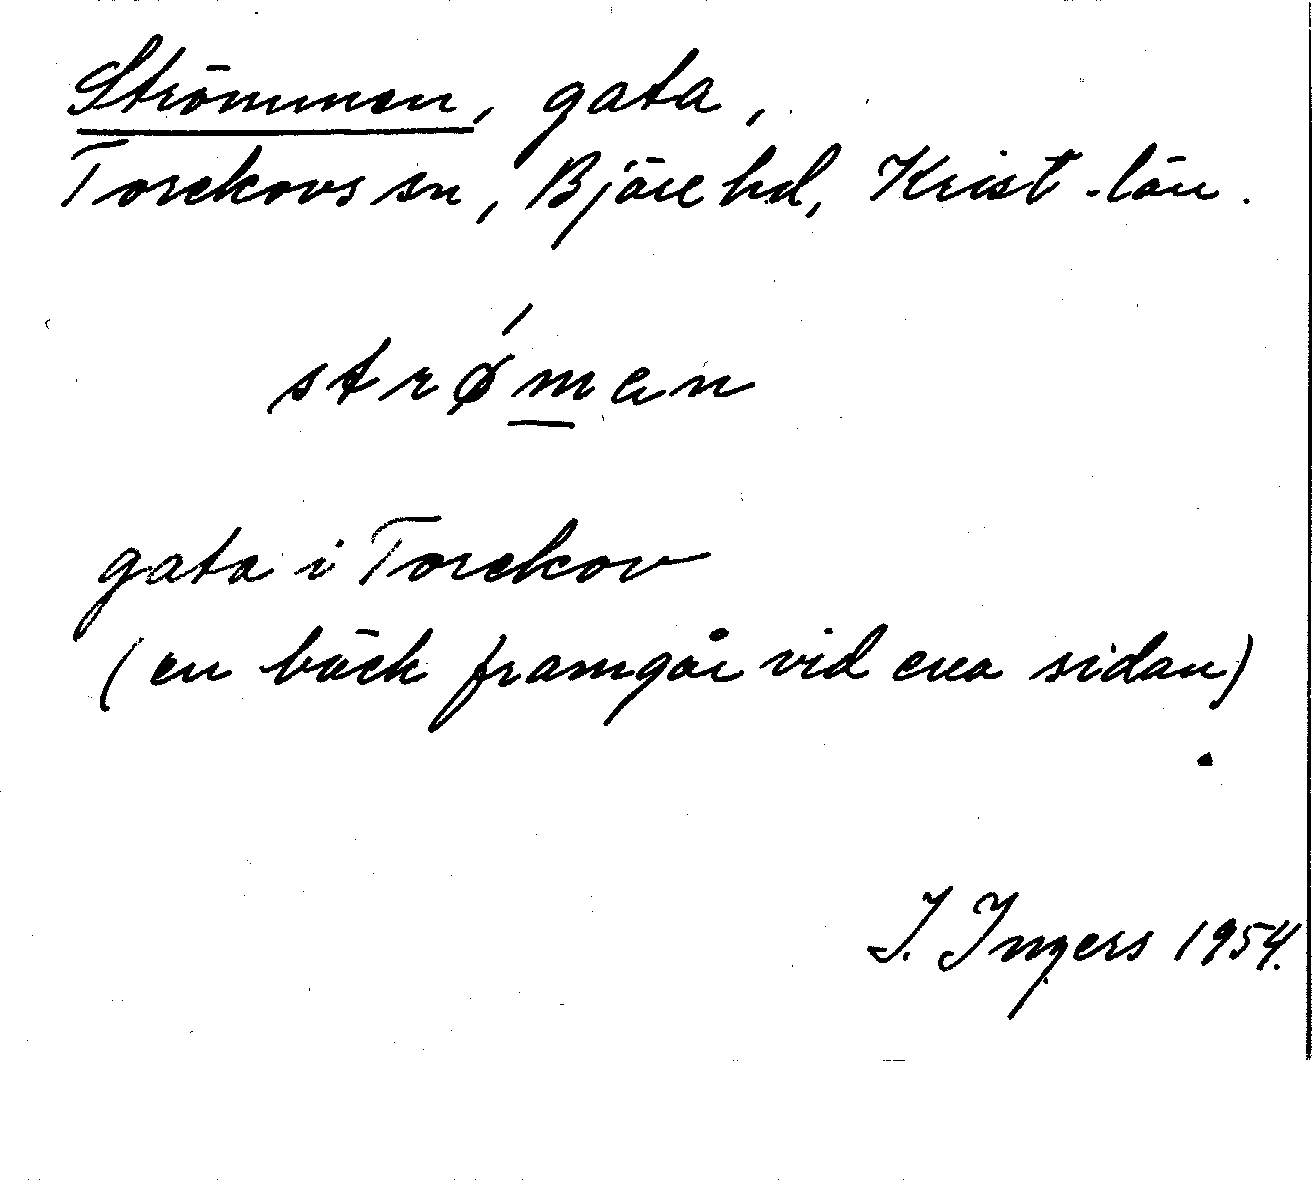 Strömmen, gata,
Torekovs sn, Bjäre hd, Krist. län.
strǿm̲ən
gata i Torekov
(en bäck framgår vid ena sidan)
.
I. Ingers 1954.